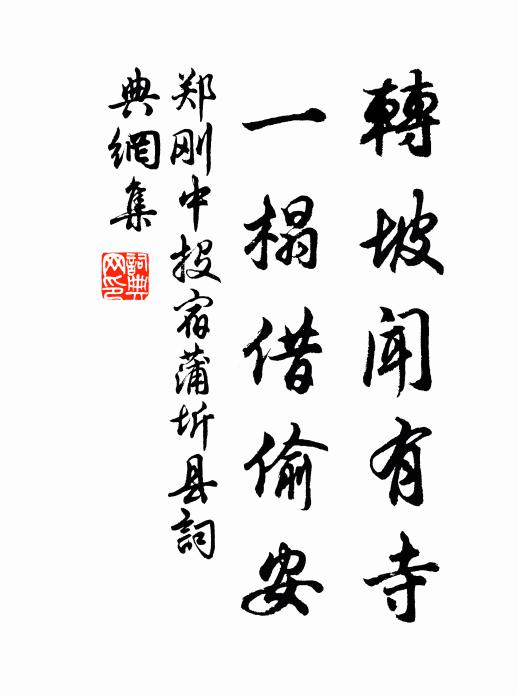 轉坡聞有寺
一榻借偷安
郑刚中投宿蒲圻县詞
典網集
詞典网印